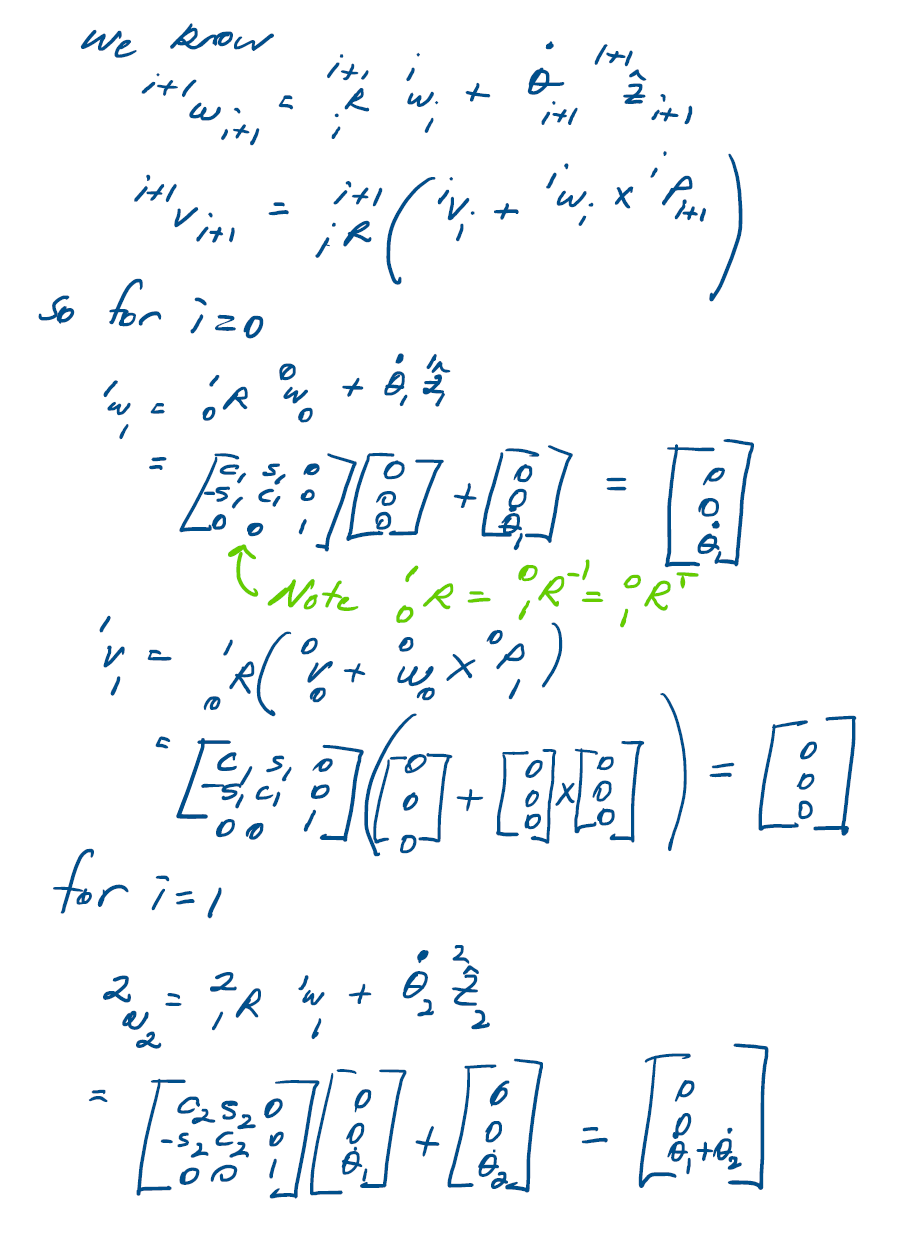 we know
^{i+1}ω_{i+1} = ^{i+1}_{i}R ^{i}ω_{i} + θ̇_{i+1} ^{i+1}Ẑ_{i+1}
^{i+1}v_{i+1} = ^{i+1}_{i}R ( ^{i}v_{i} + ^{i}ω_{i} × ^{i}P_{i+1} )
so for i=0
^{1}ω_{1} = ^{1}_{0}R ^{0}ω_{0} + θ̇_{1} ^{1}Ẑ_{1}
= [c_1 s_1 0; -s_1 c_1 0; 0 0 1] [0; 0; 0] + [0; 0; θ̇_1] = [0; 0; θ̇_1]
Note ^{1}_{0}R = ^{0}_{1}R^{-1} = ^{0}_{1}R^{T}
^{1}v_{1} = ^{1}_{0}R ( ^{0}v_{0} + ^{0}ω_{0} × ^{0}P_{1} )
= [c_1 s_1 0; -s_1 c_1 0; 0 0 1] ( [0; 0; 0] + [0; 0; 0] × [0; 0; 0] ) = [0; 0; 0]
for i=1
^{2}ω_{2} = ^{2}_{1}R ^{1}ω_{1} + θ̇_{2} ^{2}Ẑ_{2}
= [c_2 s_2 0; -s_2 c_2 0; 0 0 1] [0; 0; θ̇_1] + [0; 0; θ̇_2] = [0; 0; θ̇_1+θ̇_2]